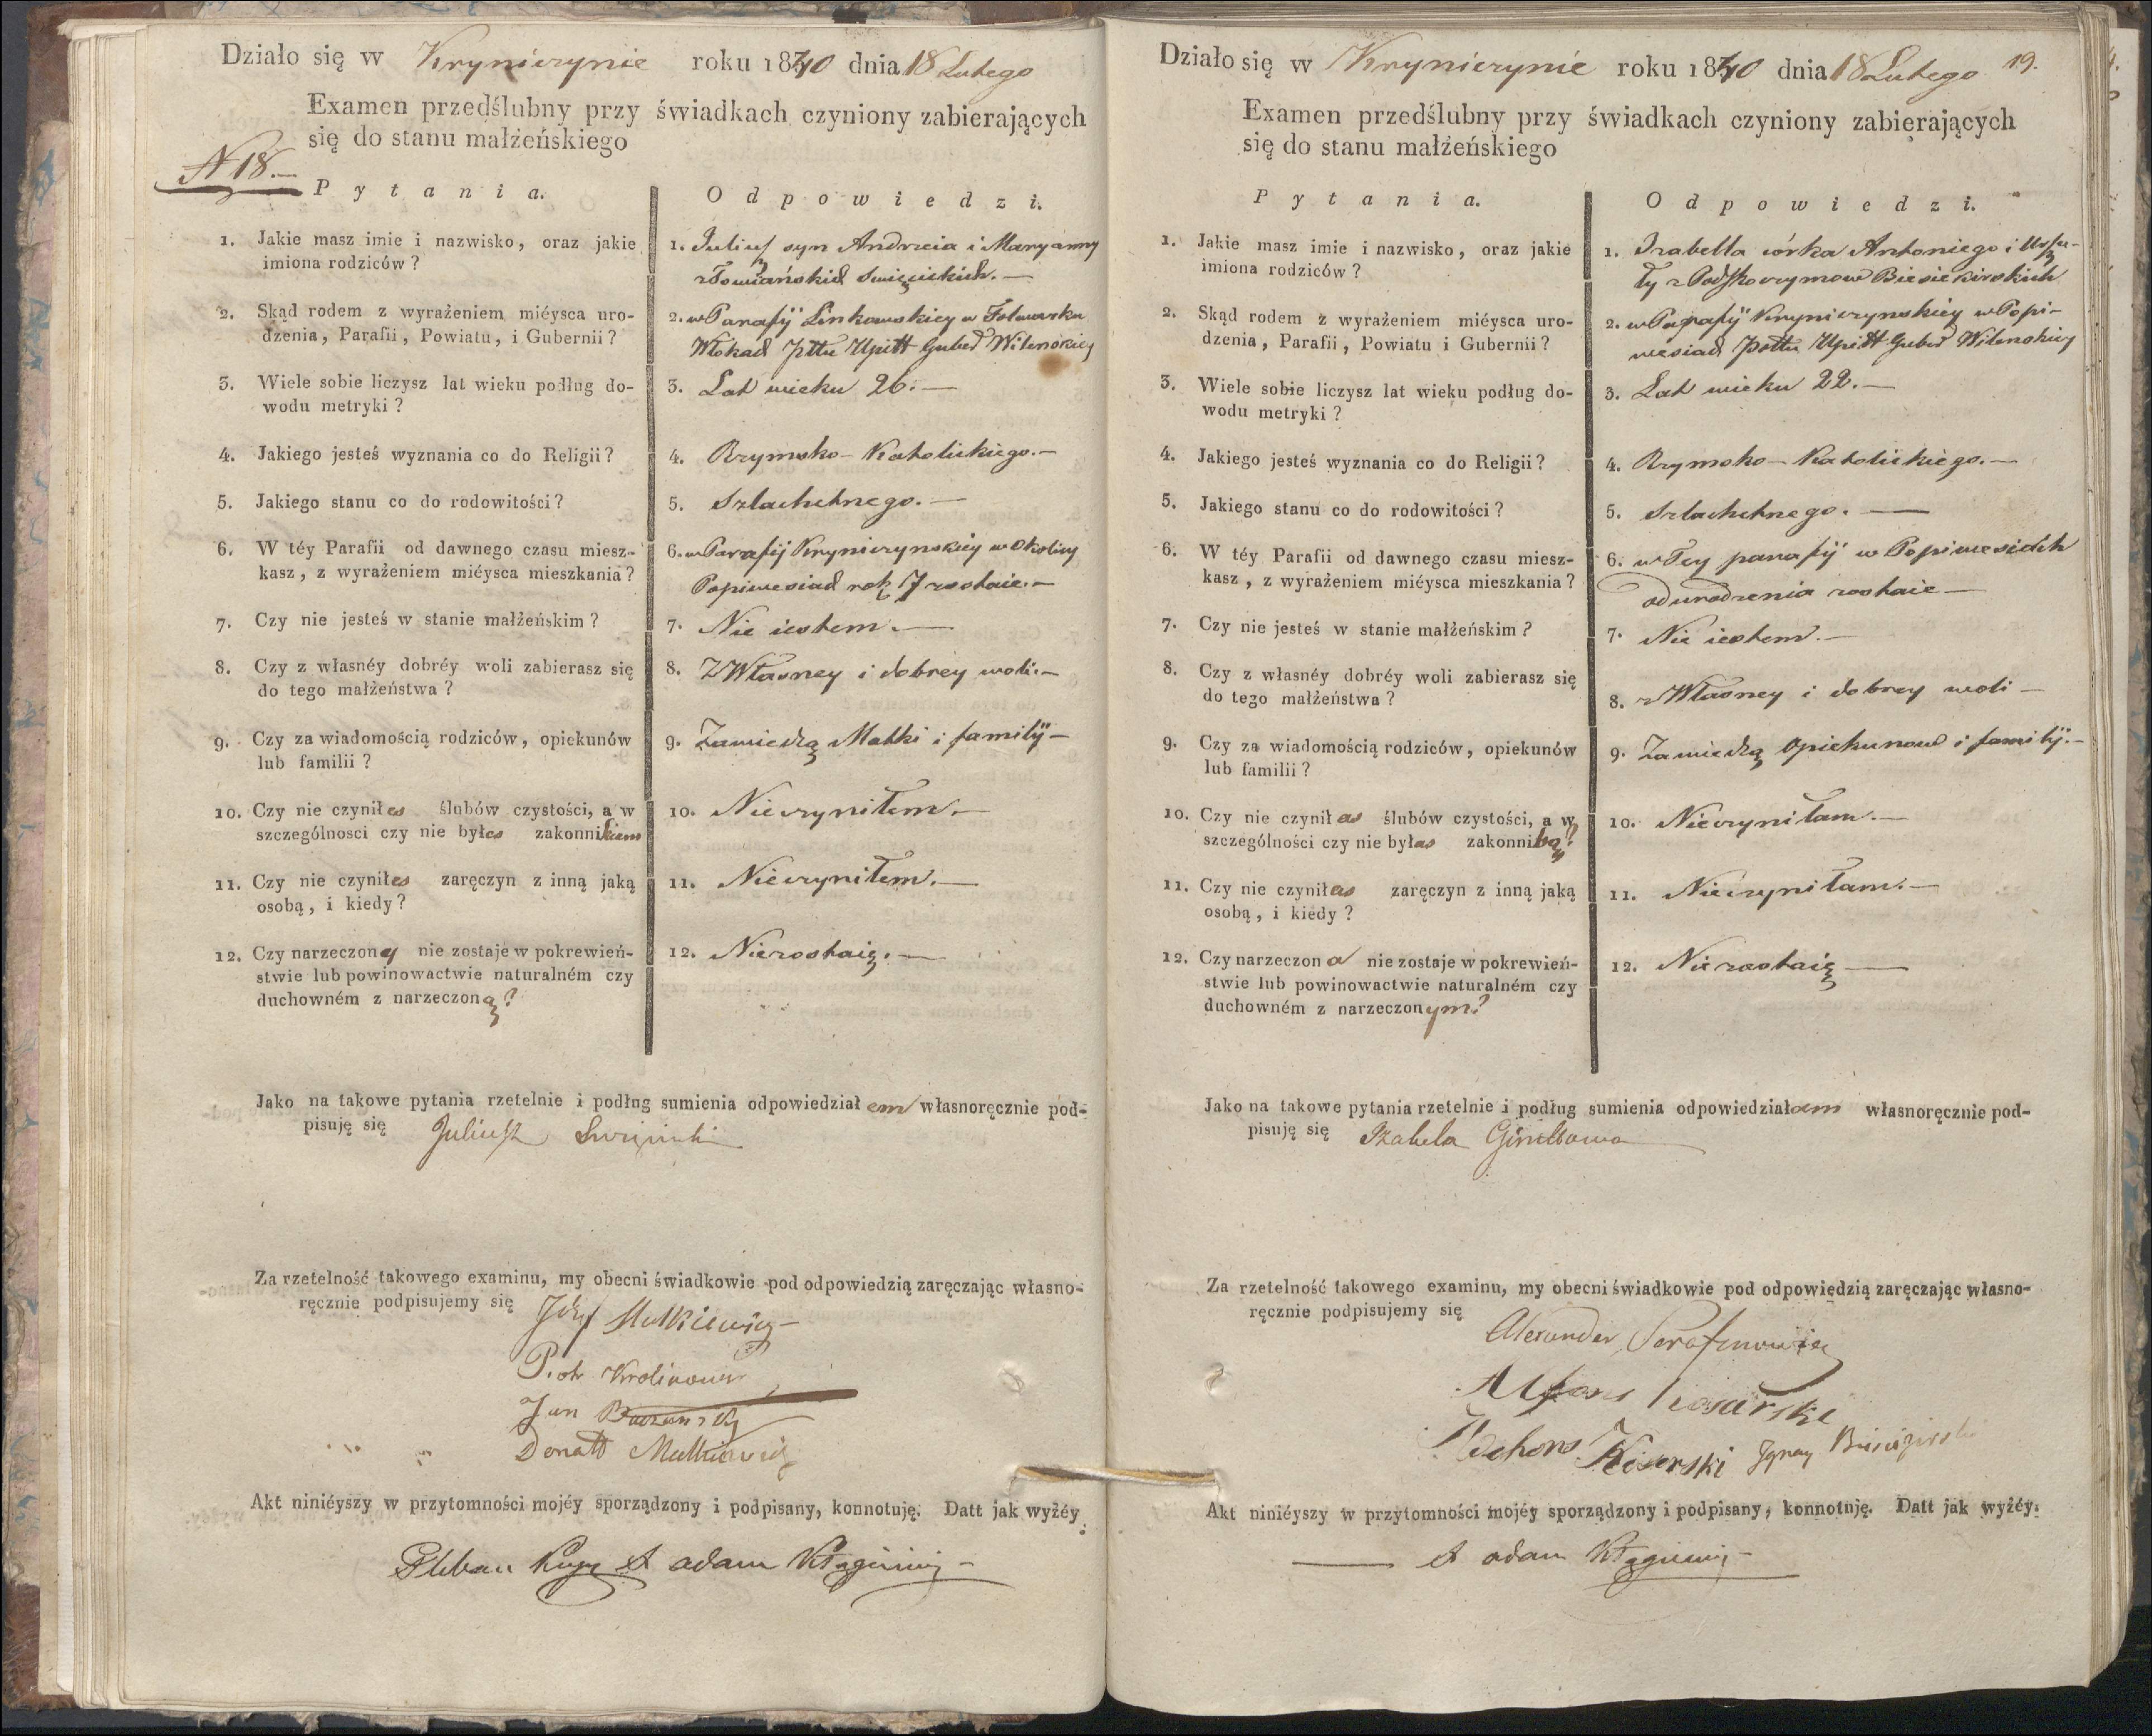 Działo się w Kryniczynie roku 1840 dnia 18 Lutego
Examen przedślubny przy świadkach czyniony zabierających
się do stanu małżeńskiego
N 18.—
Pytania.
Odpowiedzi.
1. Jakie masz imie i nazwisko, oraz jakie
imiona rodziców?
1. Juliusz syn Andrzeia i Maryanny
2. Skąd rodem z wyrażeniem miéysca uro-
dzenia, Parafii, Powiatu, i Gubernii?
2. w Parafij Linkowskiey w Folwarku
Wilenskiey
3. Wiele sobie liczysz lat wieku podług do-
wodu metryki?
3. Lat wieku 26.—
4. Jakiego jesteś wyznania co do Religii?
4. Rzymsko-Katolickiego.—
5. Jakiego stanu co do rodowitości?
5. Szlachetnego.—
6. W téy Parafii od dawnego czasu miesz-
kasz, z wyrażeniem miéysca mieszkania?
6. w Parafij Kryniczynskiey w Okolicy
zostaie.—
7. Czy nie jesteś w stanie małżeńskim?
7. Nie iestem.—
8. Czy z własnéy dobréy woli zabierasz się
do tego małżeństwa?
8. Z Własney i dobrey woli.—
9. Czy za wiadomością rodziców, opiekunów
lub familii?
9. Zawiedzą Matki i familij—
10. Czy nie czyniłes ślubów czystości, a w
szczególnosci czy nie byłes zakonnikiem
10. Nieczyniłem.—
11. Czy nie czyniłes zaręczyn z inną jaką
osobą, i kiedy?
11. Nieczyniłem.—
12. Czy narzeczony nie zostaje w pokrewień-
stwie lub powinowactwie naturalném czy
duchowném z narzeczoną?
12. Niezostaię.—
Jako na takowe pytania rzetelnie i podług sumienia odpowiedziałem własnoręcznie pod-
pisuję się Juliusz
Za rzetelność takowego examinu, my obecni świadkowie pod odpowiedzią zaręczając własno-
ręcznie podpisujemy się
Piotr
Jan
Donatt
Akt niniéyszy w przytomności mojéy sporządzony i podpisany, konnotuję. Datt jak wyżéy.
Pleban Adam
Działo się w Kryniczynie roku 1840 dnia 18 Lutego 19.
Examen przedślubny przy świadkach czyniony zabierających
się do stanu małżeńskiego
Pytania.
Odpowiedzi.
1. Jakie masz imie i nazwisko, oraz jakie
imiona rodziców?
1. Izabella córka Antoniego i Urszu-
2. Skąd rodem z wyrażeniem miéysca uro-
dzenia, Parafii, Powiatu i Gubernii?
2. w Parafij Kryniczynskiey w Popi-
Wilenskiey
3. Wiele sobie liczysz lat wieku podług do-
wodu metryki?
3. Lat wieku 22.—
4. Jakiego jesteś wyznania co do Religii?
4. Rzymsko-Katolickiego.—
5. Jakiego stanu co do rodowitości?
5. Szlachetnego.—
6. W téy Parafii od dawnego czasu miesz-
kasz, z wyrażeniem miéysca mieszkania?
6. w Tey parafij w
od urodzenia zostaie—
7. Czy nie jesteś w stanie małżeńskim?
7. Nie iestem.—
8. Czy z własnéy dobréy woli zabierasz się
do tego małżeństwa?
8. z Własney i dobrey woli—
9. Czy za wiadomością rodziców, opiekunów
lub familii?
9. Zawiedzą Opiekunow i familij.—
10. Czy nie czyniłas ślubów czystości, a w
szczególności czy nie byłas zakonniką?
10. Nieczyniłam.—
11. Czy nie czyniłas zaręczyn z inną jaką
osobą, i kiedy?
11. Nieczyniłam.—
12. Czy narzeczona nie zostaje w pokrewień-
stwie lub powinowactwie naturalném czy
duchowném z narzeczonym?
12. Nie zostaię—
Jako na takowe pytania rzetelnie i podług sumienia odpowiedziałam własnoręcznie pod-
pisuję się Izabela
Za rzetelność takowego examinu, my obecni świadkowie pod odpowiedzią zaręczając własno-
ręcznie podpisujemy się
Alexander
Akt niniéyszy w przytomności mojéy sporządzony i podpisany, konnotuję. Datt jak wyżéy.
Adam